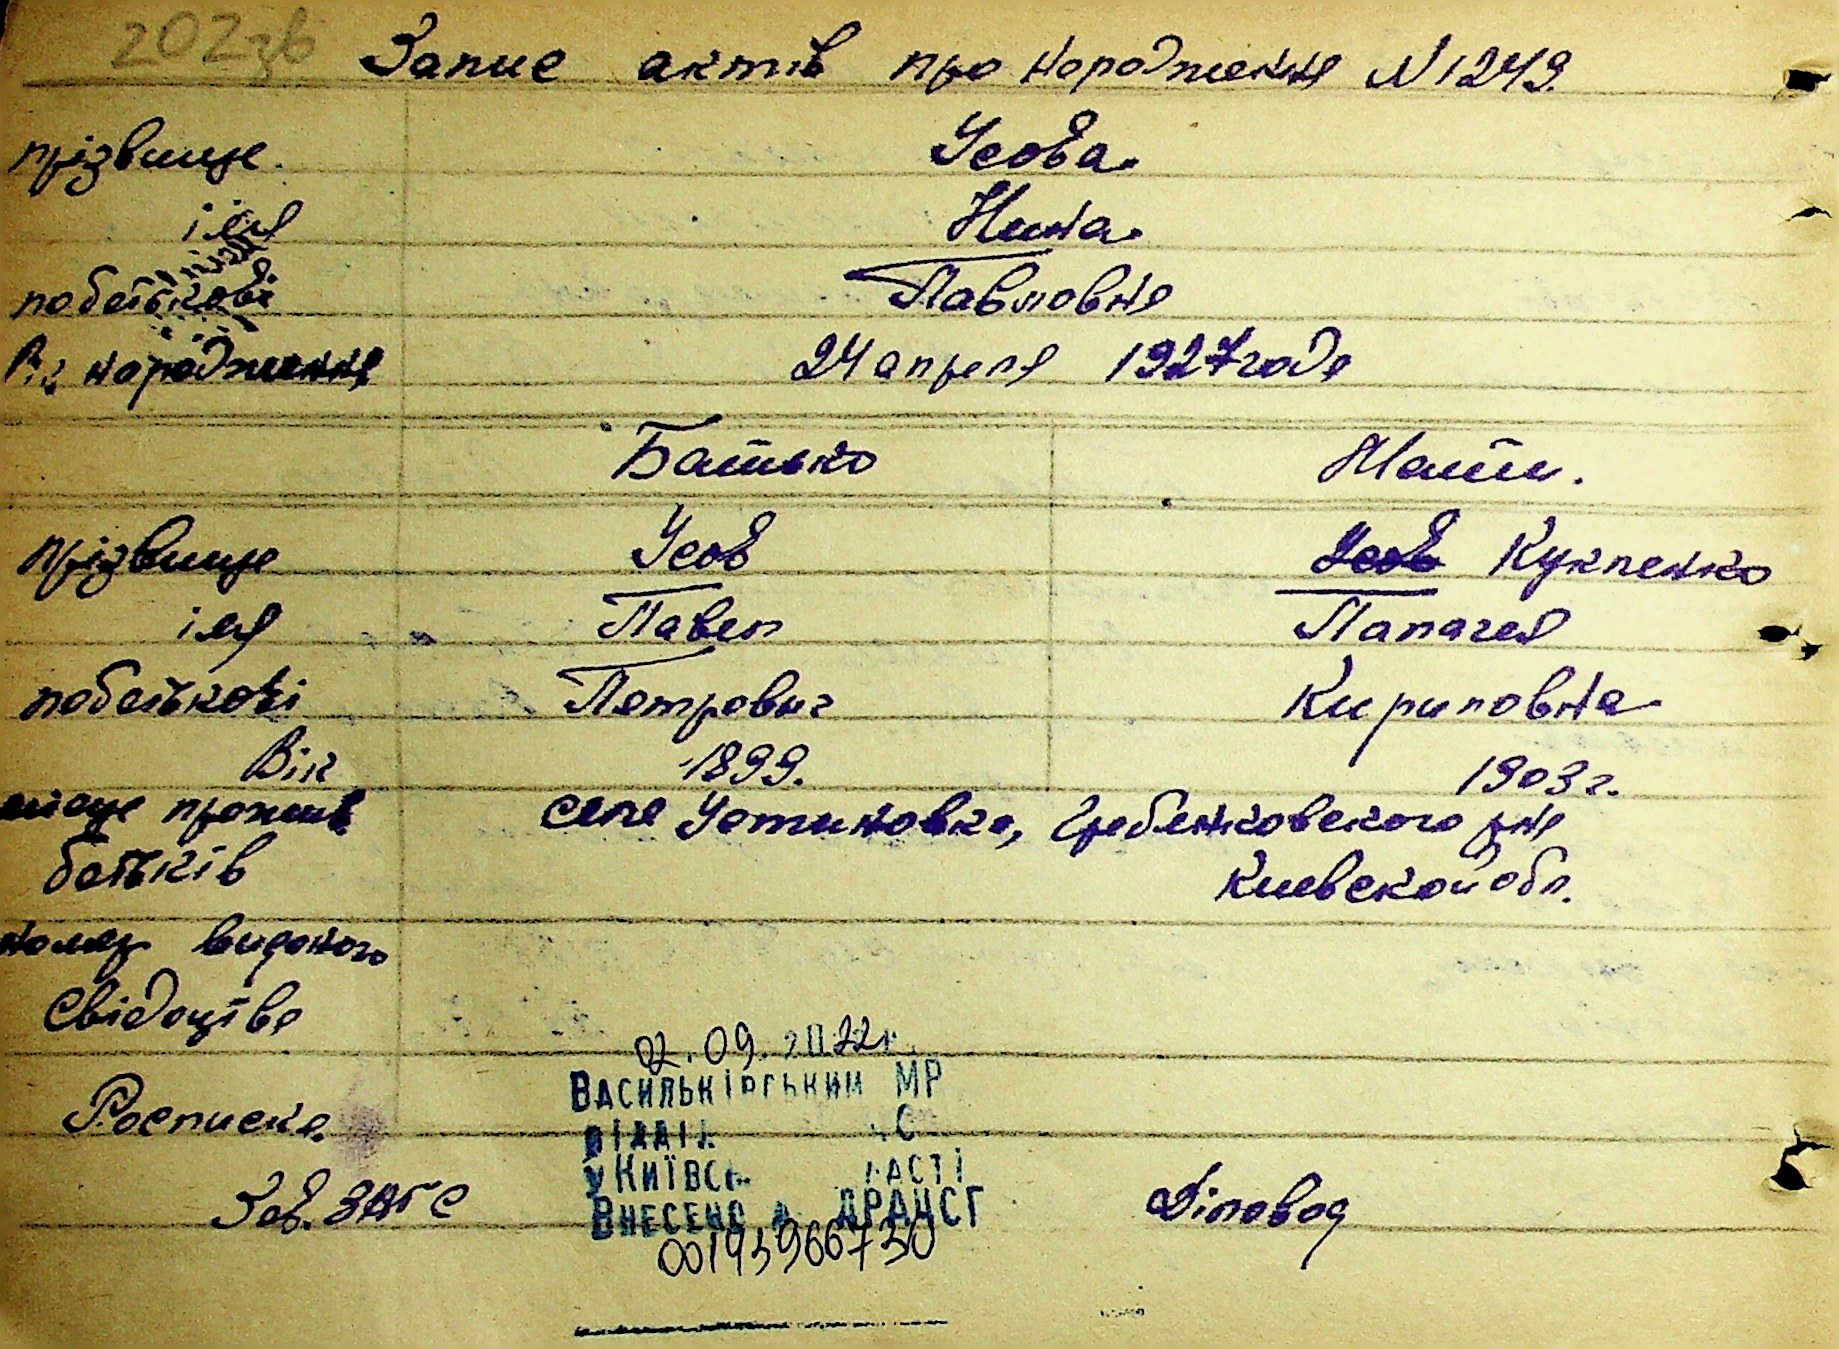 202зв
Запис актів про народження N 1249.
прізвище. Усова
імя Нина
побатькові Павловна
Рік народження 24 апреля 1927 года
Батько Мати.
прізвище Усов Усов Кукленко
імя Павел Палагея
побатькові Петрович Кириловна
Вік 1899. 1903 г.
місце прожив села Устиновка, Гребенковского рна
батьків Киевской обл.
номер виданого
Свідоцтва
02.09.2022 г.
Васильківським МР
Росписка. відділ С
у Київс асті
Зав. ЗАГС Внесено ДРАЦСГ Діловод
00193966730